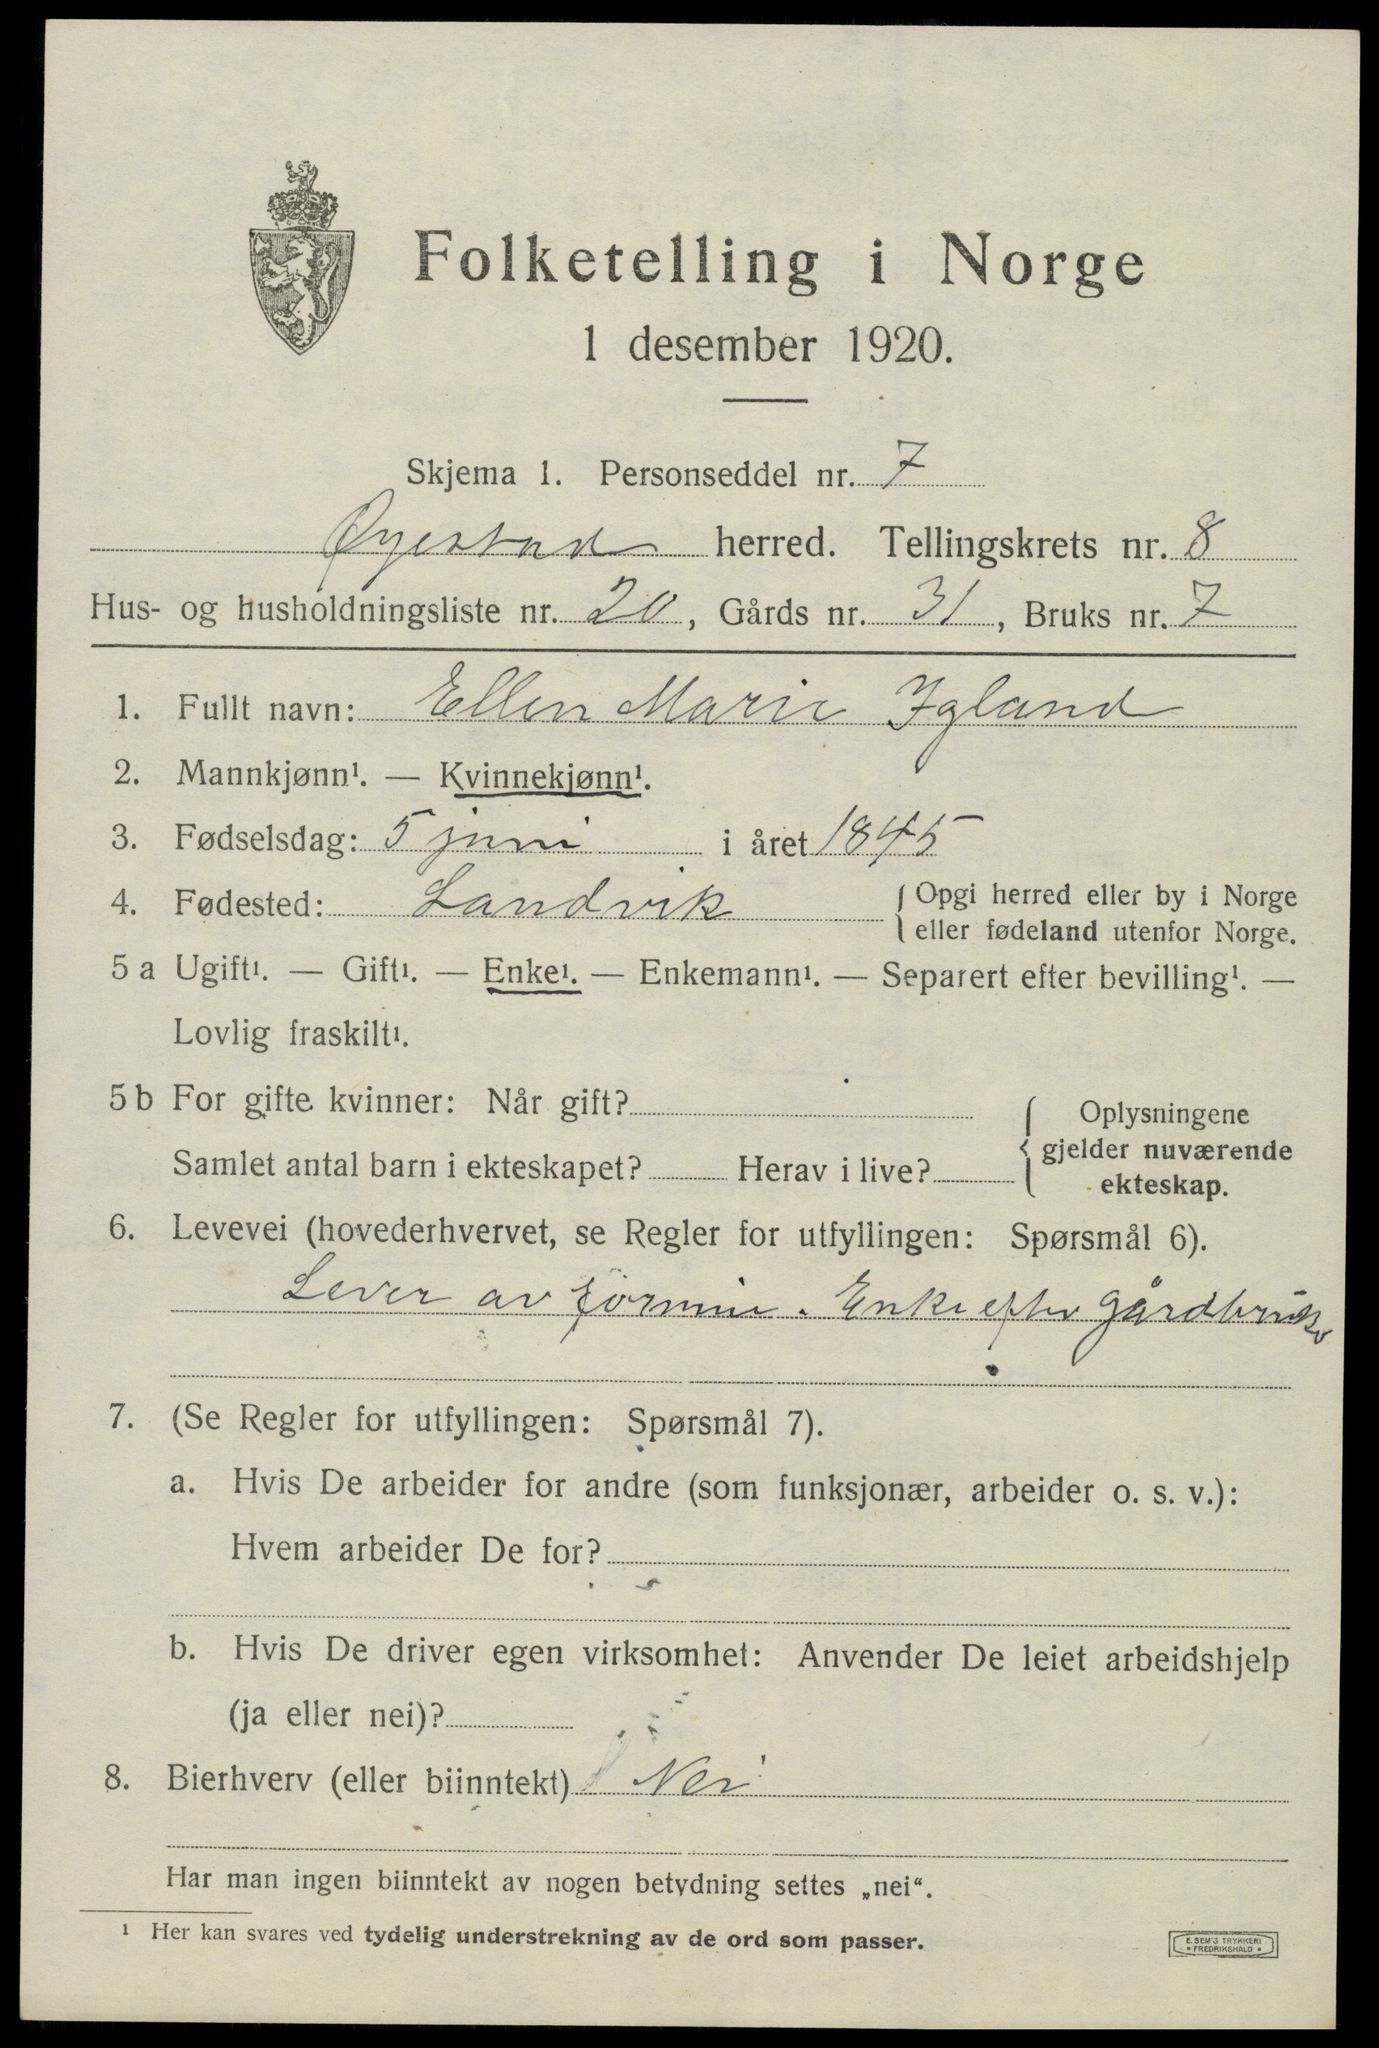 Folketelling i Norge
1 desember 1920.
Skjema 1. Personseddel nr. 7
Øyestad herred. Tellingskrets nr. 8
Hus- og husholdningsliste nr. 20, Gårds nr. 31, Bruks nr. 7
1. Fullt navn: Ellen Marie Igland
2. Mannkjønn¹. — Kvinnekjønn¹.
3. Fødselsdag: 5 juni i året 1845
4. Fødested: Landvik { Opgi herred eller by i Norge
eller fødeland utenfor Norge.
5 a Ugift¹. — Gift¹. — Enke¹. — Enkemann¹. — Separert efter bevilling¹. —
Lovlig fraskilt¹.
5 b For gifte kvinner: Når gift?
Samlet antal barn i ekteskapet? Herav i live?
{ Oplysningene
gjelder nuværende
ekteskap.
6. Levevei (hovederhvervet, se Regler for utfyllingen: Spørsmål 6).
Lever av formue. Enke efter gårdbruker
7. (Se Regler for utfyllingen: Spørsmål 7).
a. Hvis De arbeider for andre (som funksjonær, arbeider o. s. v.):
Hvem arbeider De for?
b. Hvis De driver egen virksomhet: Anvender De leiet arbeidshjelp
(ja eller nei)?
8. Bierhverv (eller biinntekt) Nei
Har man ingen biinntekt av nogen betydning settes „nei“.
¹ Her kan svares ved tydelig understrekning av de ord som passer.
E. SEM'S TRYKKERI
FREDRIKSHALD